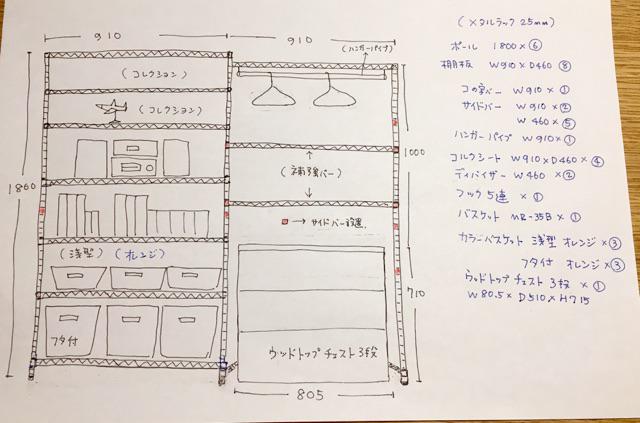 910
910
(ハンガーパイプ)
(コレクション)
(コレクション)
1800
1000
(補強バー)
→サイドバー設置.
(浅型) (オレンジ)
710
フタ付
ウッドトップチェスト3段
805
(メタルラック 25mm)
ポール 1800×⑥
棚板 W910×D460 ⑧
コの字バー W910×①
サイドバー W910×②
W460×⑤
ハンガーパイプ W910×①
コルクシート W910×D460×④
ディバイザー W460×②
フック5連×①
バスケット MR-35B×①
カラーバスケット 浅型 オレンジ×③
フタ付 オレンジ×③
ウッドトップチェスト3段×①
W80.5×D510×H715